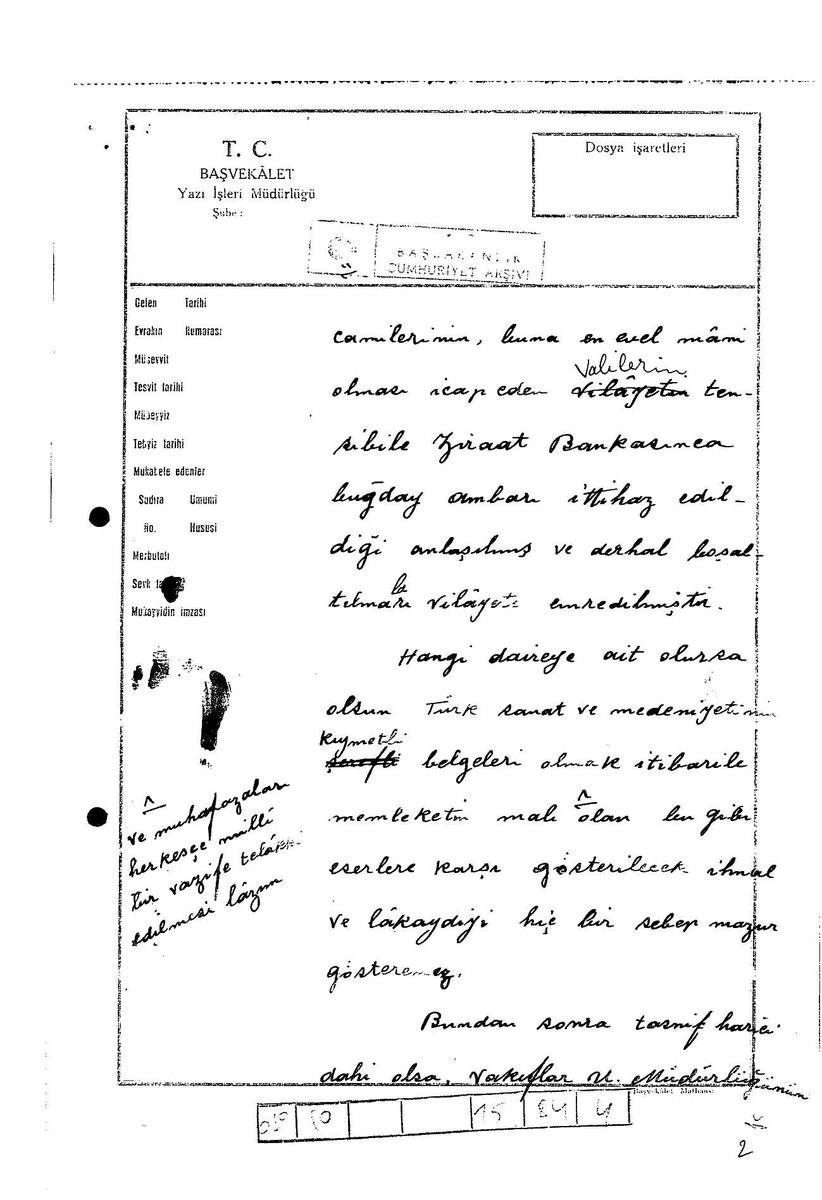 T. C.
BAŞVEKÂLET
Yazı İşleri Müdürlüğü
Şube :
Dosya işaretleri
BAŞBAKANLIK
CUMHURİYET ARŞİVİ
Gelen Tarihi
Evrakın Numarası
Müsevvit
Tesvit tarihi
Mübeyyiz
Tebyiz tarihi
Mukabele edenler
Sadıra Umumi
No. Hususi
Merbutatı
Sevk
Mukayyidin imzası
camilerinin, buna en evel mâni
Valilerin
olması icap eden vilâyetin ten-
sibile Ziraat Bankasınca
buğday ambarı ittihaz edil-
diği anlaşılmış ve derhal boşal-
tılması vilâyete emredilmiştir.
Hangi daireye ait olursa
olsun Türk sanat ve medeniyetinin
kıymetli
şerefli belgeleri olmak itibarile
memleketin malı olan bu gibi
eserlere karşı gösterilecek ihmal
ve lâkaydiyi hiç bir sebep mazur
gösteremez.
ve muhafazaları
herkesçe millî
bir vazife telâkki
edilmesi lâzım
Bundan sonra tasnif harici
dahi olsa, Vakıflar U. Müdürlüğünün
Başvekâlet Matbaası
030 10 15 84 4
2